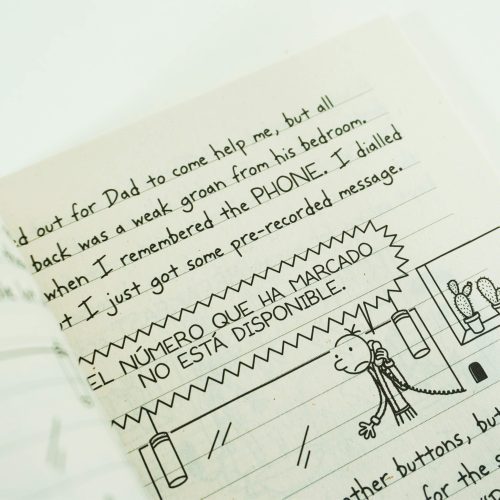 d out for Dad to come help me, but all
back was a weak groan from his bedroom.
when I remembered the PHONE. I dialled
t I just got some pre-recorded message.
EL NÚMERO QUE HA MARCADO
NO ESTÁ DISPONIBLE.
ther buttons, but
for the s